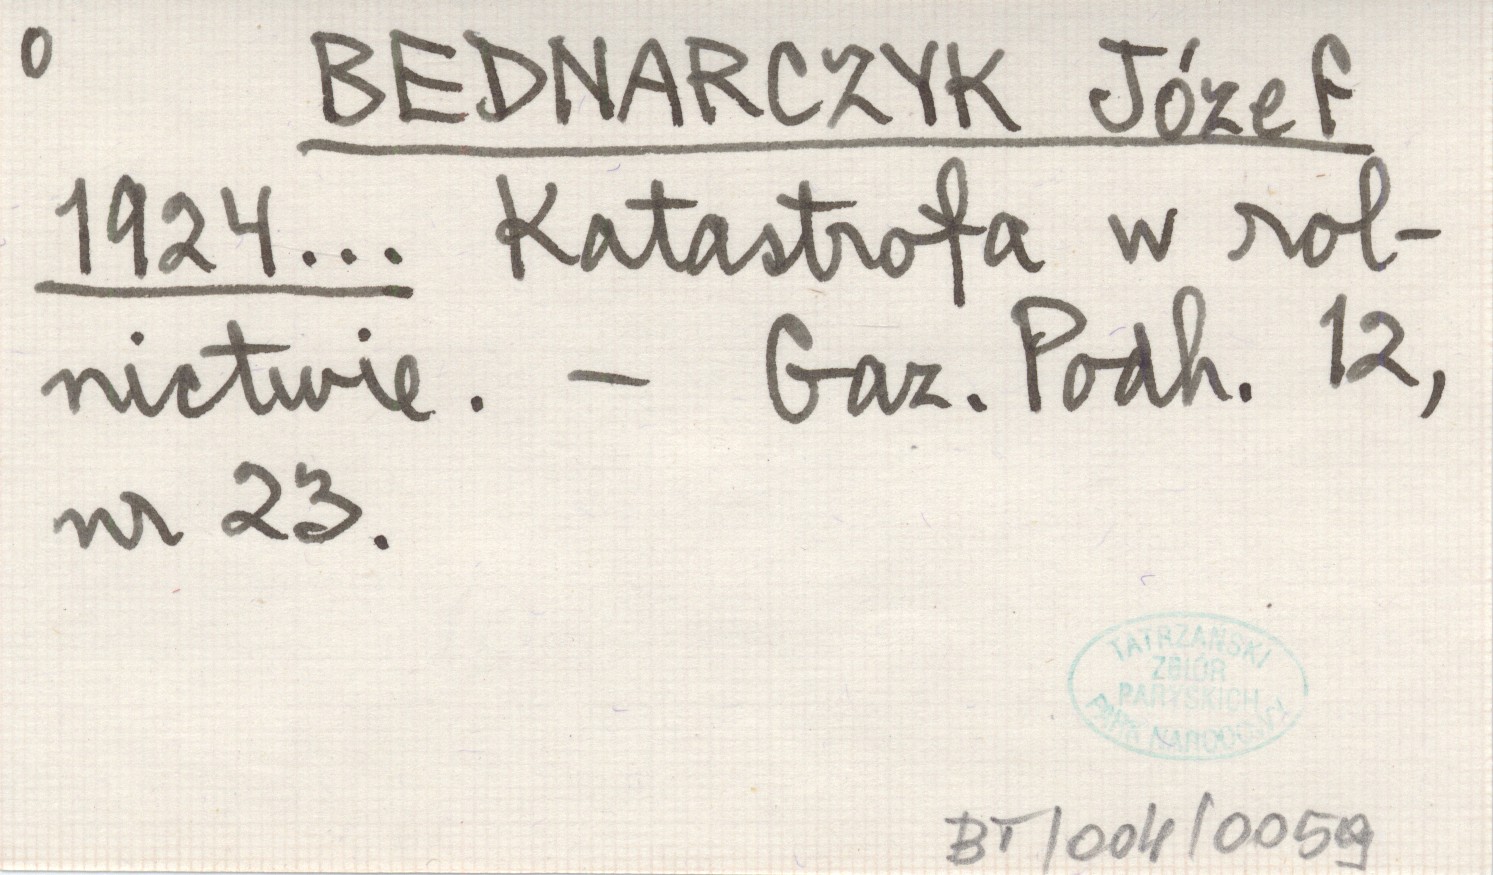 0
BEDNARCZYK Józef
1924... Katastrofa w rol-
nictwie. — Gaz. Podh. 12,
nr 23.
TATRZAŃSKI
ZBIÓR
PARYSKICH
PARK NARODOWY
BT/004/0059